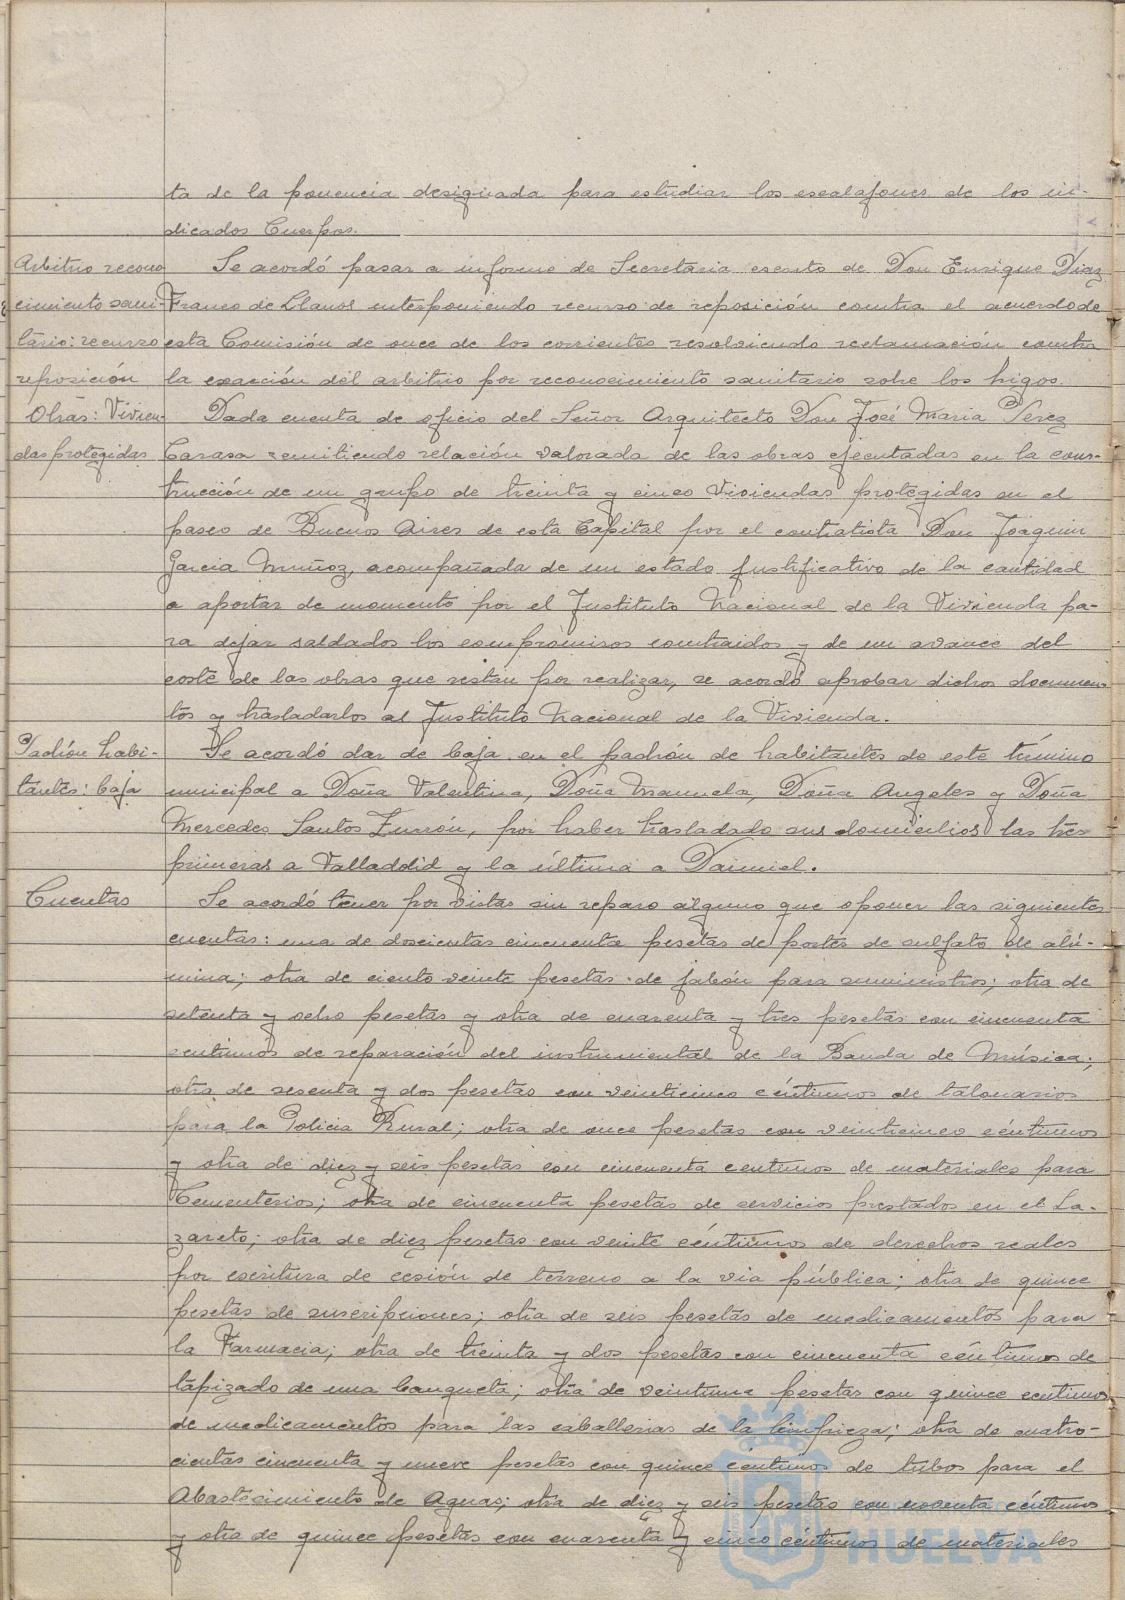 ta de la ponencia designada para estudiar los escalafones de los in-
dicados Cuerpos.
Arbitrio recono
cimiento sani-
tario: recurso
reposición
Se acordó pasar a informe de Secretaria escrito de Don Enrique Diaz
Franco de Llanos interponiendo recurso de reposición contra el acuerdo de
esta Comisión de once de los corrientes resolviendo reclamación contra
la exacción del arbitrio por reconocimiento sanitario sobre los higos.
Obras: Vivien-
das protegidas
Dada cuenta de oficio del Señor Arquitecto Don José Maria Perez
Carasa remitiendo relación valorada de las obras ejecutadas en la cons-
trucción de un grupo de treinta y cinco Viviendas protegidas en el
paseo de Buenos Aires de esta Capital por el contratista Don Joaquin
Garcia Muñoz, acompañada de un estado justificativo de la cantidad
a aportar de momento por el Instituto Nacional de la Vivienda pa-
ra dejar saldados los compromisos contraidos y de un avance del
coste de las obras que restan por realizar, se acordó aprobar dichos documen-
tos y trasladarlos al Instituto Nacional de la Vivienda.
Padrón habi-
tantes: baja
Se acordó dar de baja en el padrón de habitantes de este término
municipal a Doña Valentina, Doña Manuela, Doña Angeles y Doña
Mercedes Santos Zurrón, por haber trasladado sus domicilios las tres
primeras a Valladolid y la última a Daimiel.
Cuentas
Se acordó tener por vistas sin reparo alguno que oponer las siguientes
cuentas: una de doscientas cincuenta pesetas de portes de sulfato de alú-
mina; otra de ciento veinte pesetas de jabón para suministros; otra de
setenta y ocho pesetas y otra de cuarenta y tres pesetas con cincuenta
centimos de reparación del instrumental de la Banda de Música;
otra de sesenta y dos pesetas con veinticinco céntimos de talonarios
para la Policia Rural; otra de once pesetas con veinticinco céntimos
y otra de diez y seis pesetas con cincuenta centimos de materiales para
Cementerios; otra de cincuenta pesetas de servicios prestados en el La-
zareto; otra de diez pesetas con veinte céntimos de derechos reales
por escritura de cesión de terreno a la via pública; otra de quince
pesetas de suscripciones; otra de seis pesetas de medicamentos para
la Farmacia; otra de treinta y dos pesetas con cincuenta céntimos de
tapizado de una banqueta; otra de veintiuna pesetas con quince centimos
de medicamentos para las caballerias de la limpieza; otra de cuatro-
cientas cincuenta y nueve pesetas con quince céntimos de tubos para el
Abastecimiento de Aguas; otra de diez y seis pesetas con noventa céntimos
y otra de quince pesetas con cuarenta y cinco céntimos de materiales
HUELVA